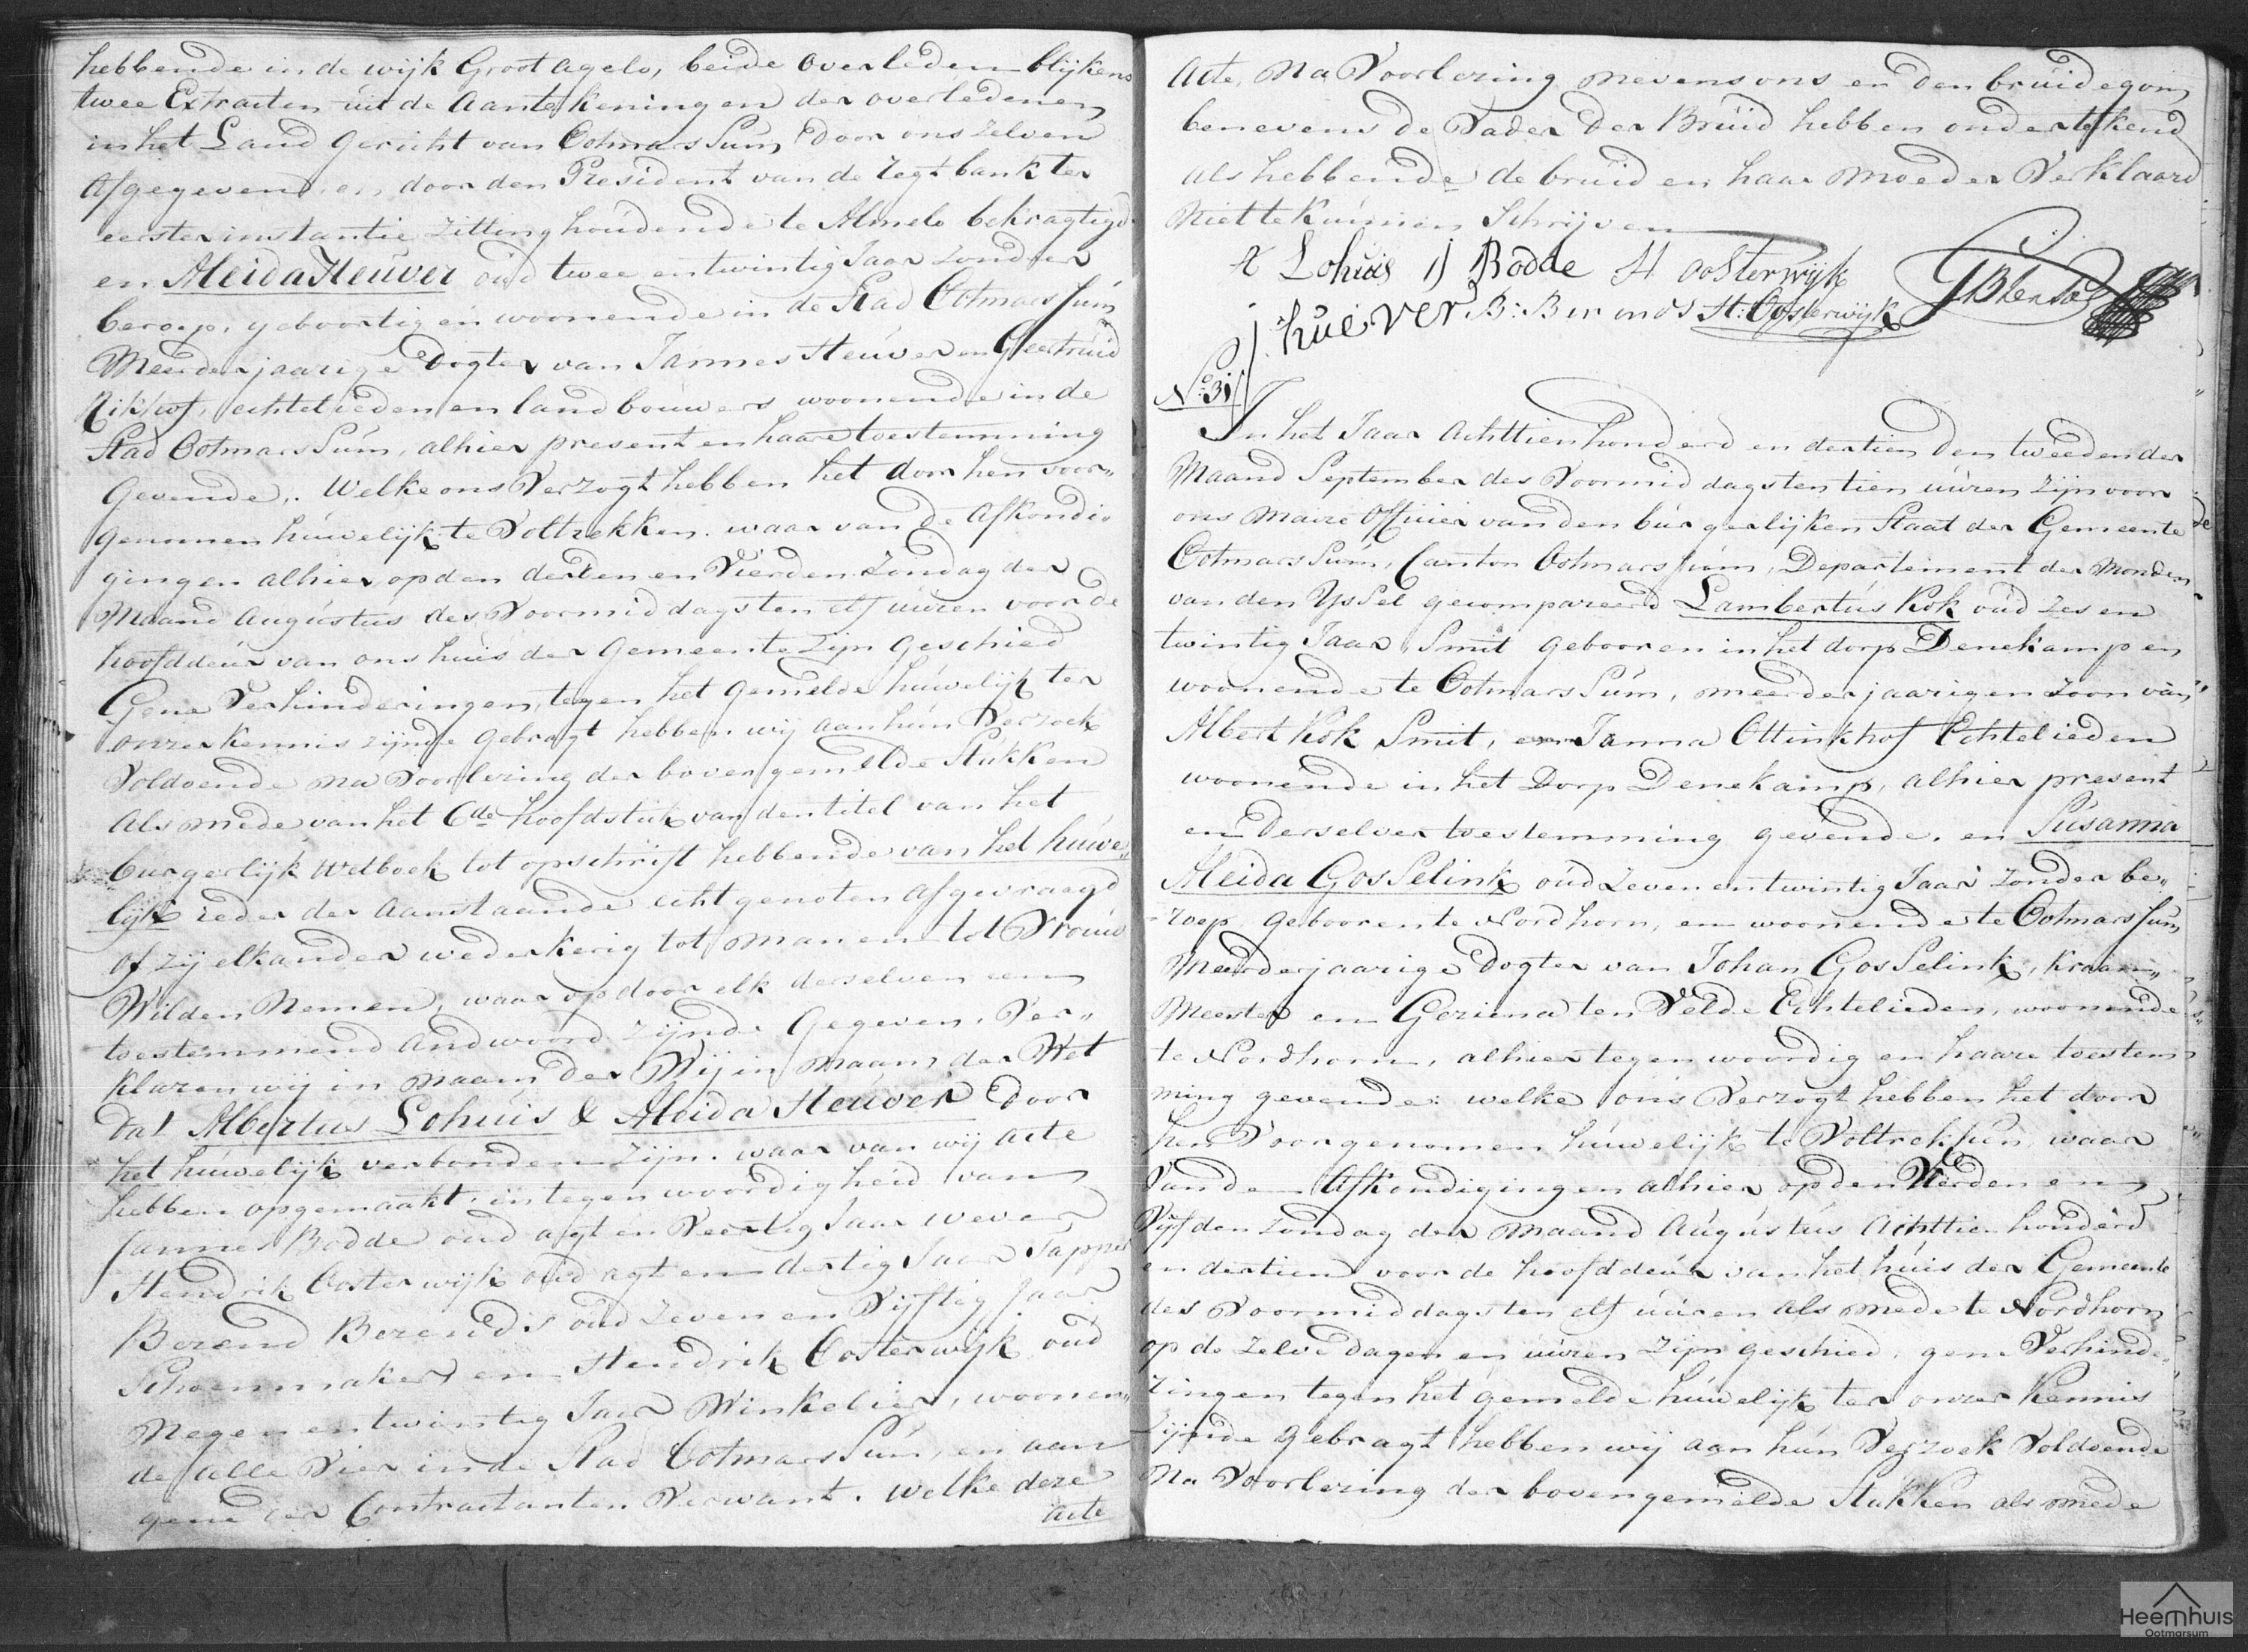 hebbende in de wijk Groot agelo, beide overleden blijkens
twee Extracten uit de Aantekeningen der overledenen
in het Land Gericht van Ootmarssum door ons zelven
Afgegeven en door den President van de regtbank ter
eerster instantie zitting houdende te Almelo bekragtigd
en Aleida Heuver oud twee en twintig Jaar zonder
beroep, geboortig en woonende in de Stad Ootmarssum
Meerderjaarige Dogter van Jannes Heuver en Geertruid
echtelieden en landbouwers woonende in de
Stad Ootmarssum, alhier present en haare toestemming
Gevende. Welke ons Verzogt hebben het door hen voor„
genomen huwelijk te Voltrekken. waar van de Afkondi„
gingen alhier op den derden en Vierden Zondag der
Maand Augustus des Voormiddags ten elf uuren voor de
hoofddeur van ons huis der Gemeente zijn Geschied
Gene Verhinderingen tegen het Gemelde huwelijk ter
onzer kennis zijnde Gebragt hebben wij aan hun Verzoek
Voldoende na Voorlezing der bovengemelde Stukken
Als mede van het 6de hoofdstuk van den titel van het
burgerlijk Wetboek tot opschrift hebbende van het huwe„
lijk ieder der Aanstaande echtgenoten Afgevraagd
of zij elkander wederkerig tot man en tot Vrouw
Wilden Nemen, waar op door elk derselven een
toestemmend Andwoord zijnde Gegeven, Ver„
klaren wij in naam der Wij in naam der Wet
dat Albertus Lohuis & Aleida Heuver Door
het huwelijk verbonden zijn. waar van wij acte
hebben opgemaakt. in tegenwoordigheid van
Jannes Bodde oud agt en Veertig Jaar wever
Hendrik Oosterwijk oud agt en dertig Jaar Tapper
Berend Berends oud zeven en Vijftig Jaar
Schoenmaker en Hendrik Oosterwijk oud
Negen en twintig Jaar Winkelier, woonen„
de alle Vier in de Stad Ootmarssum, en aan
gene der Contractanten Verwant. Welke deze
acte
Acte, Na Voorlezing nevens ons en den bruidegom
benevens de Vader der Bruid hebben ondertekend
als hebbende de bruid en haar moeder Verklaard
Niet te kunnen Schrijven
A Lohuis J Bodde H oosterwijk
J. huever B: Berends H: Oosterwijk
No: 31
In het Jaar Achttienhonderd en dertien den tweeden der
Maand September des Voormiddags ten tien uuren zijn voor
ons Maire Officier van den burgerlijken Staat der Gemeente
Ootmarssum, Canton Ootmarssum, Departement der Monden
van den Yssel gecompareerd Lambertus Kok oud zes en
twintig Jaar Smit gebooren in het dorp Denekamp en
woonende te Ootmarssum, meerderjaarigen zoon van
Albert Kok Smit, en Janna Ottinkhof Echtelieden
woonende in het Dorp Denekamp, alhier present
en Derselver toestemming gevende. en Susanna
Aleida Gosselink oud zeven en twintig Jaar zonder be„
roep, gebooren te Nordhorn, en woonende te Ootmarssum,
Meerderjaarige Dogter van Johan Gosselink, Kraam„
Meester en Geziena ten Velde Echtelieden, woonende
te Nordhorn, alhier tegenwoordig en haare toestem
ming gevende: welke ons Verzogt hebben het door
hen Voorgenomen huwelijk te Voltrekken waar
Van de Afkondigingen alhier op den Vierden en
Vijfden zondag der maand Augustus Achttien honderd
en dertien voor de hoofddeur van het huis der Gemeente
des Voormiddags ten elf uuren als mede te Nordhorn
op de zelve dagen en uuren zijn geschied, gene Verhinde„
ringen tegen het gemelde huwelijk ter onzer Kennis
zijnde gebragt hebben wij aan hun Verzoek Voldoende
Na Voorlezing der bovengemelde Stukken als mede
Heemhuis
Ootmarsum